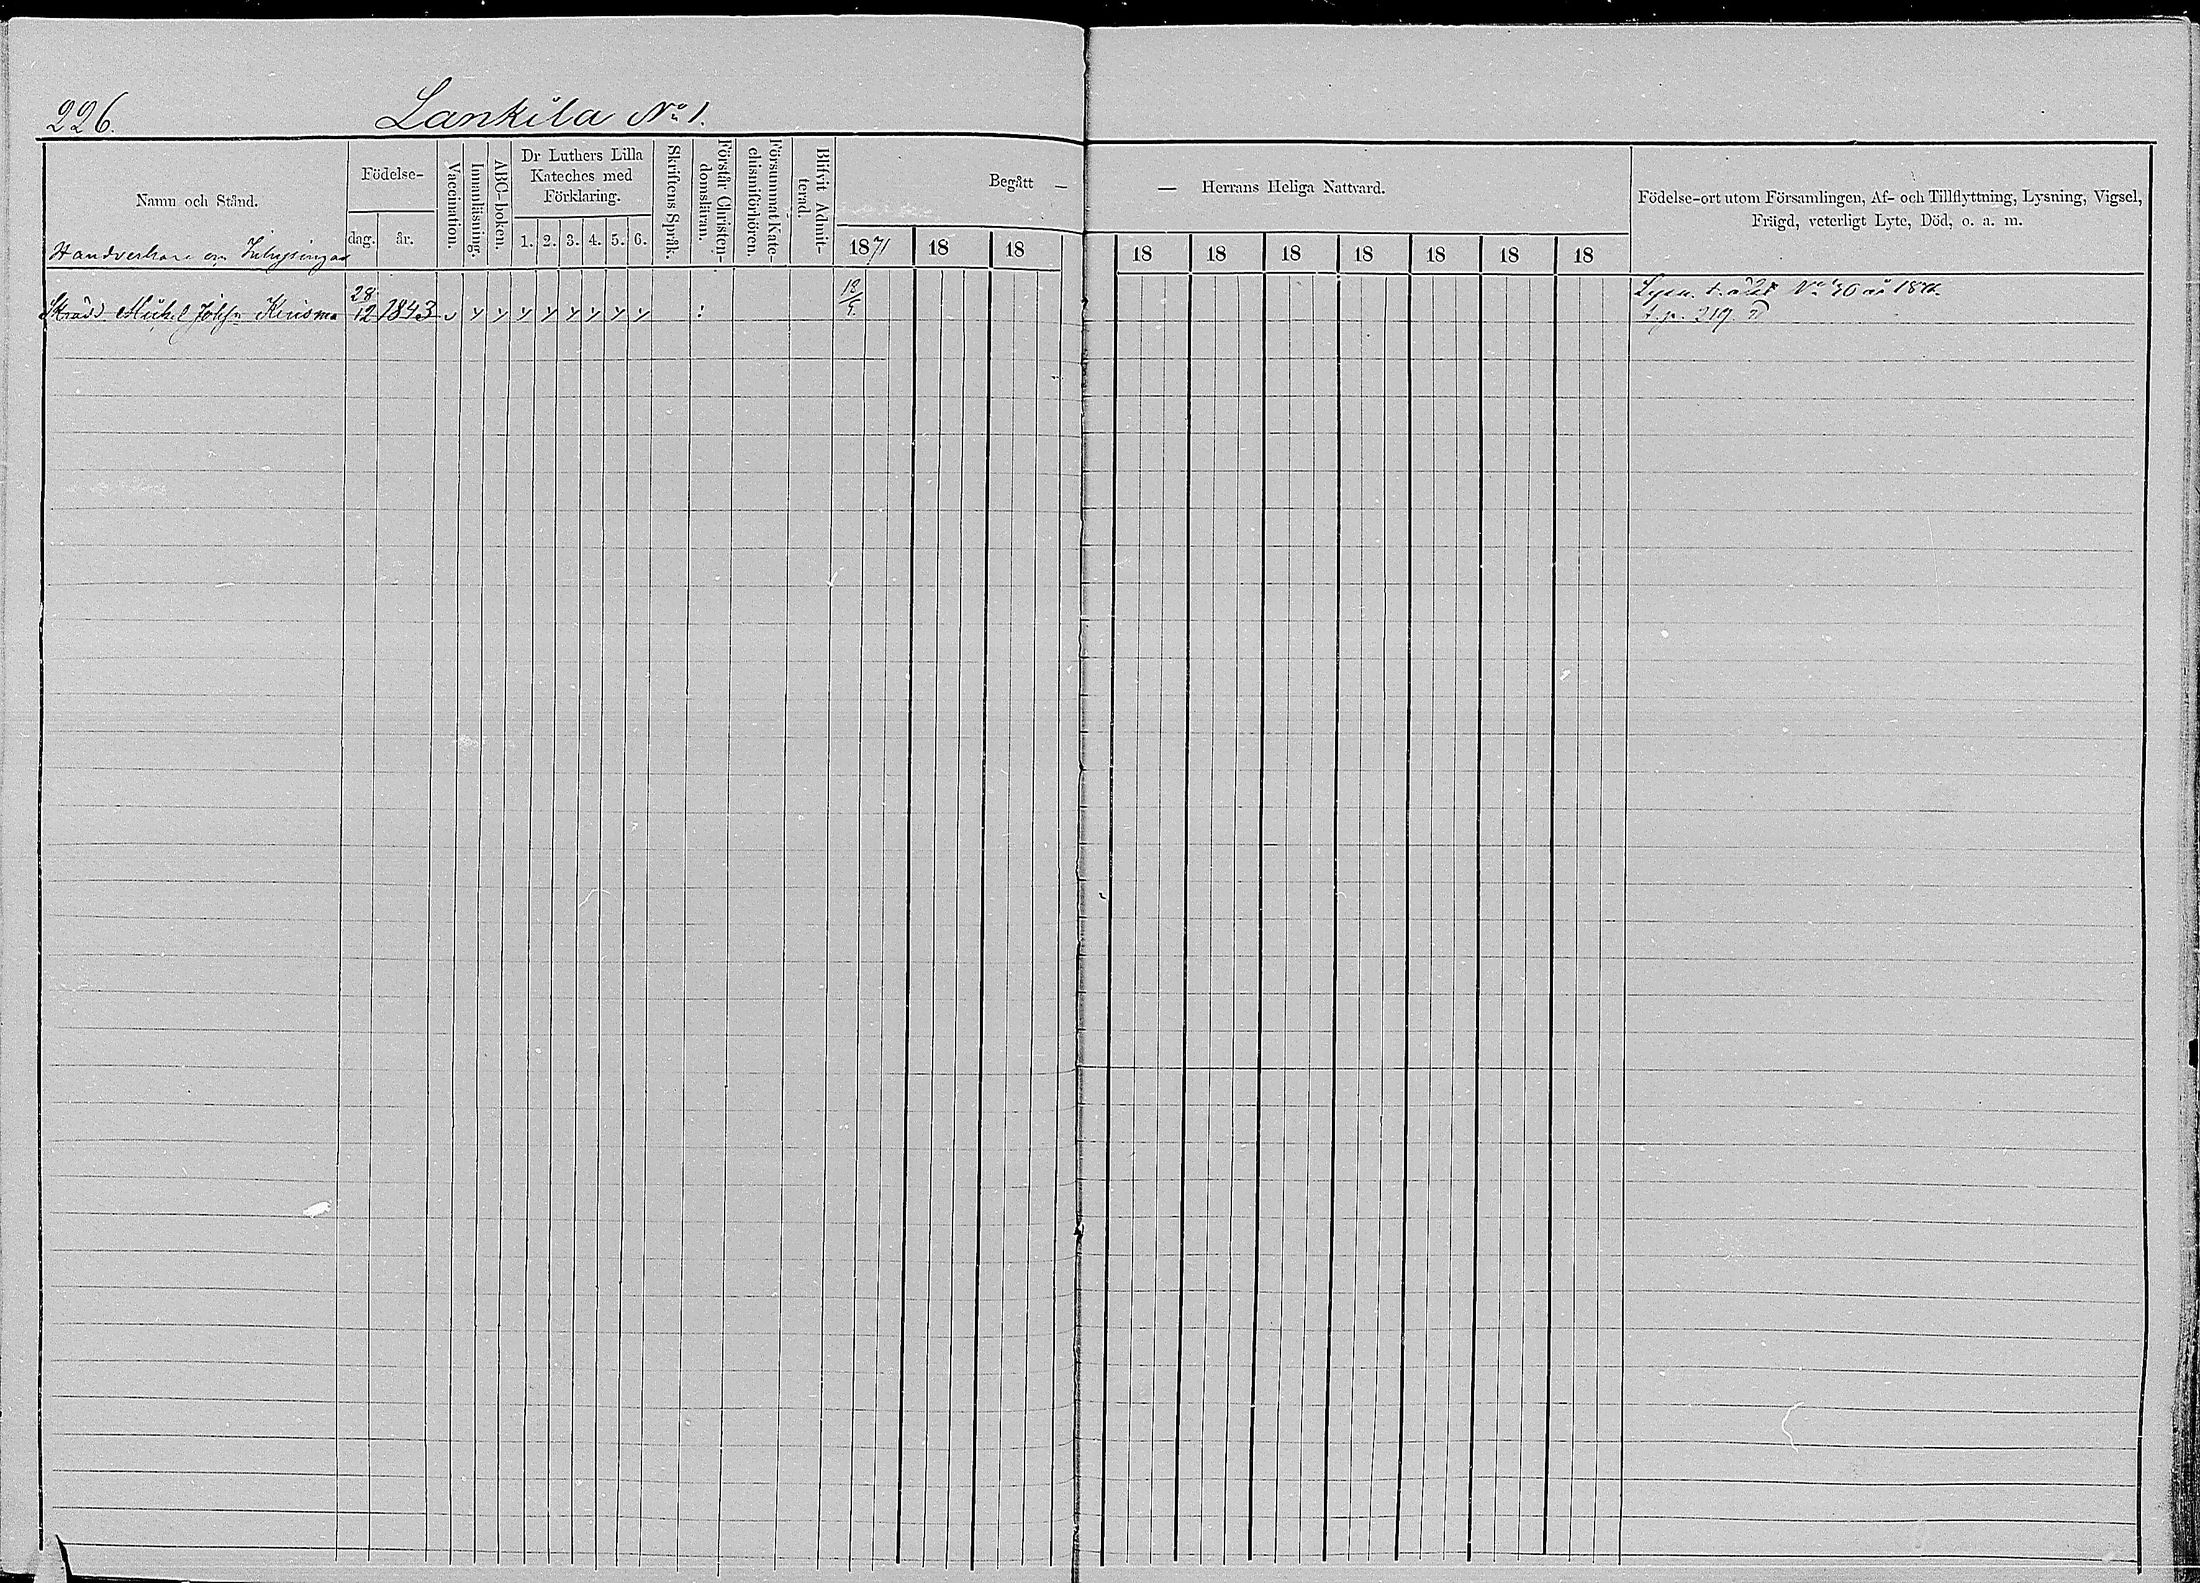 226.
Lankila No 1.
Namn och Stånd.
Födelse-
dag. år.
Vaccination.
Innanläsning.
ABC-boken.
Dr Luthers Lilla
Kateches med
Förklaring.
1. 2. 3. 4. 5. 6.
Skriftens Språk.
Förstår Christen-
domsläran.
Försummat Kate-
chismiförhören.
Blifvit Admit-
terad.
Begått —
1871 18 18
— Herrans Heliga Nattvard.
18 18 18 18 18 18 18
Födelse-ort utom Församlingen, Af- och Tillflyttning, Lysning, Vigsel,
Frägd, veterligt Lyte, Död, o. a. m.
Handverkare
Skrädd. Michel Johsn 28/12 1843
Lysn. No 30
t. p. 219.